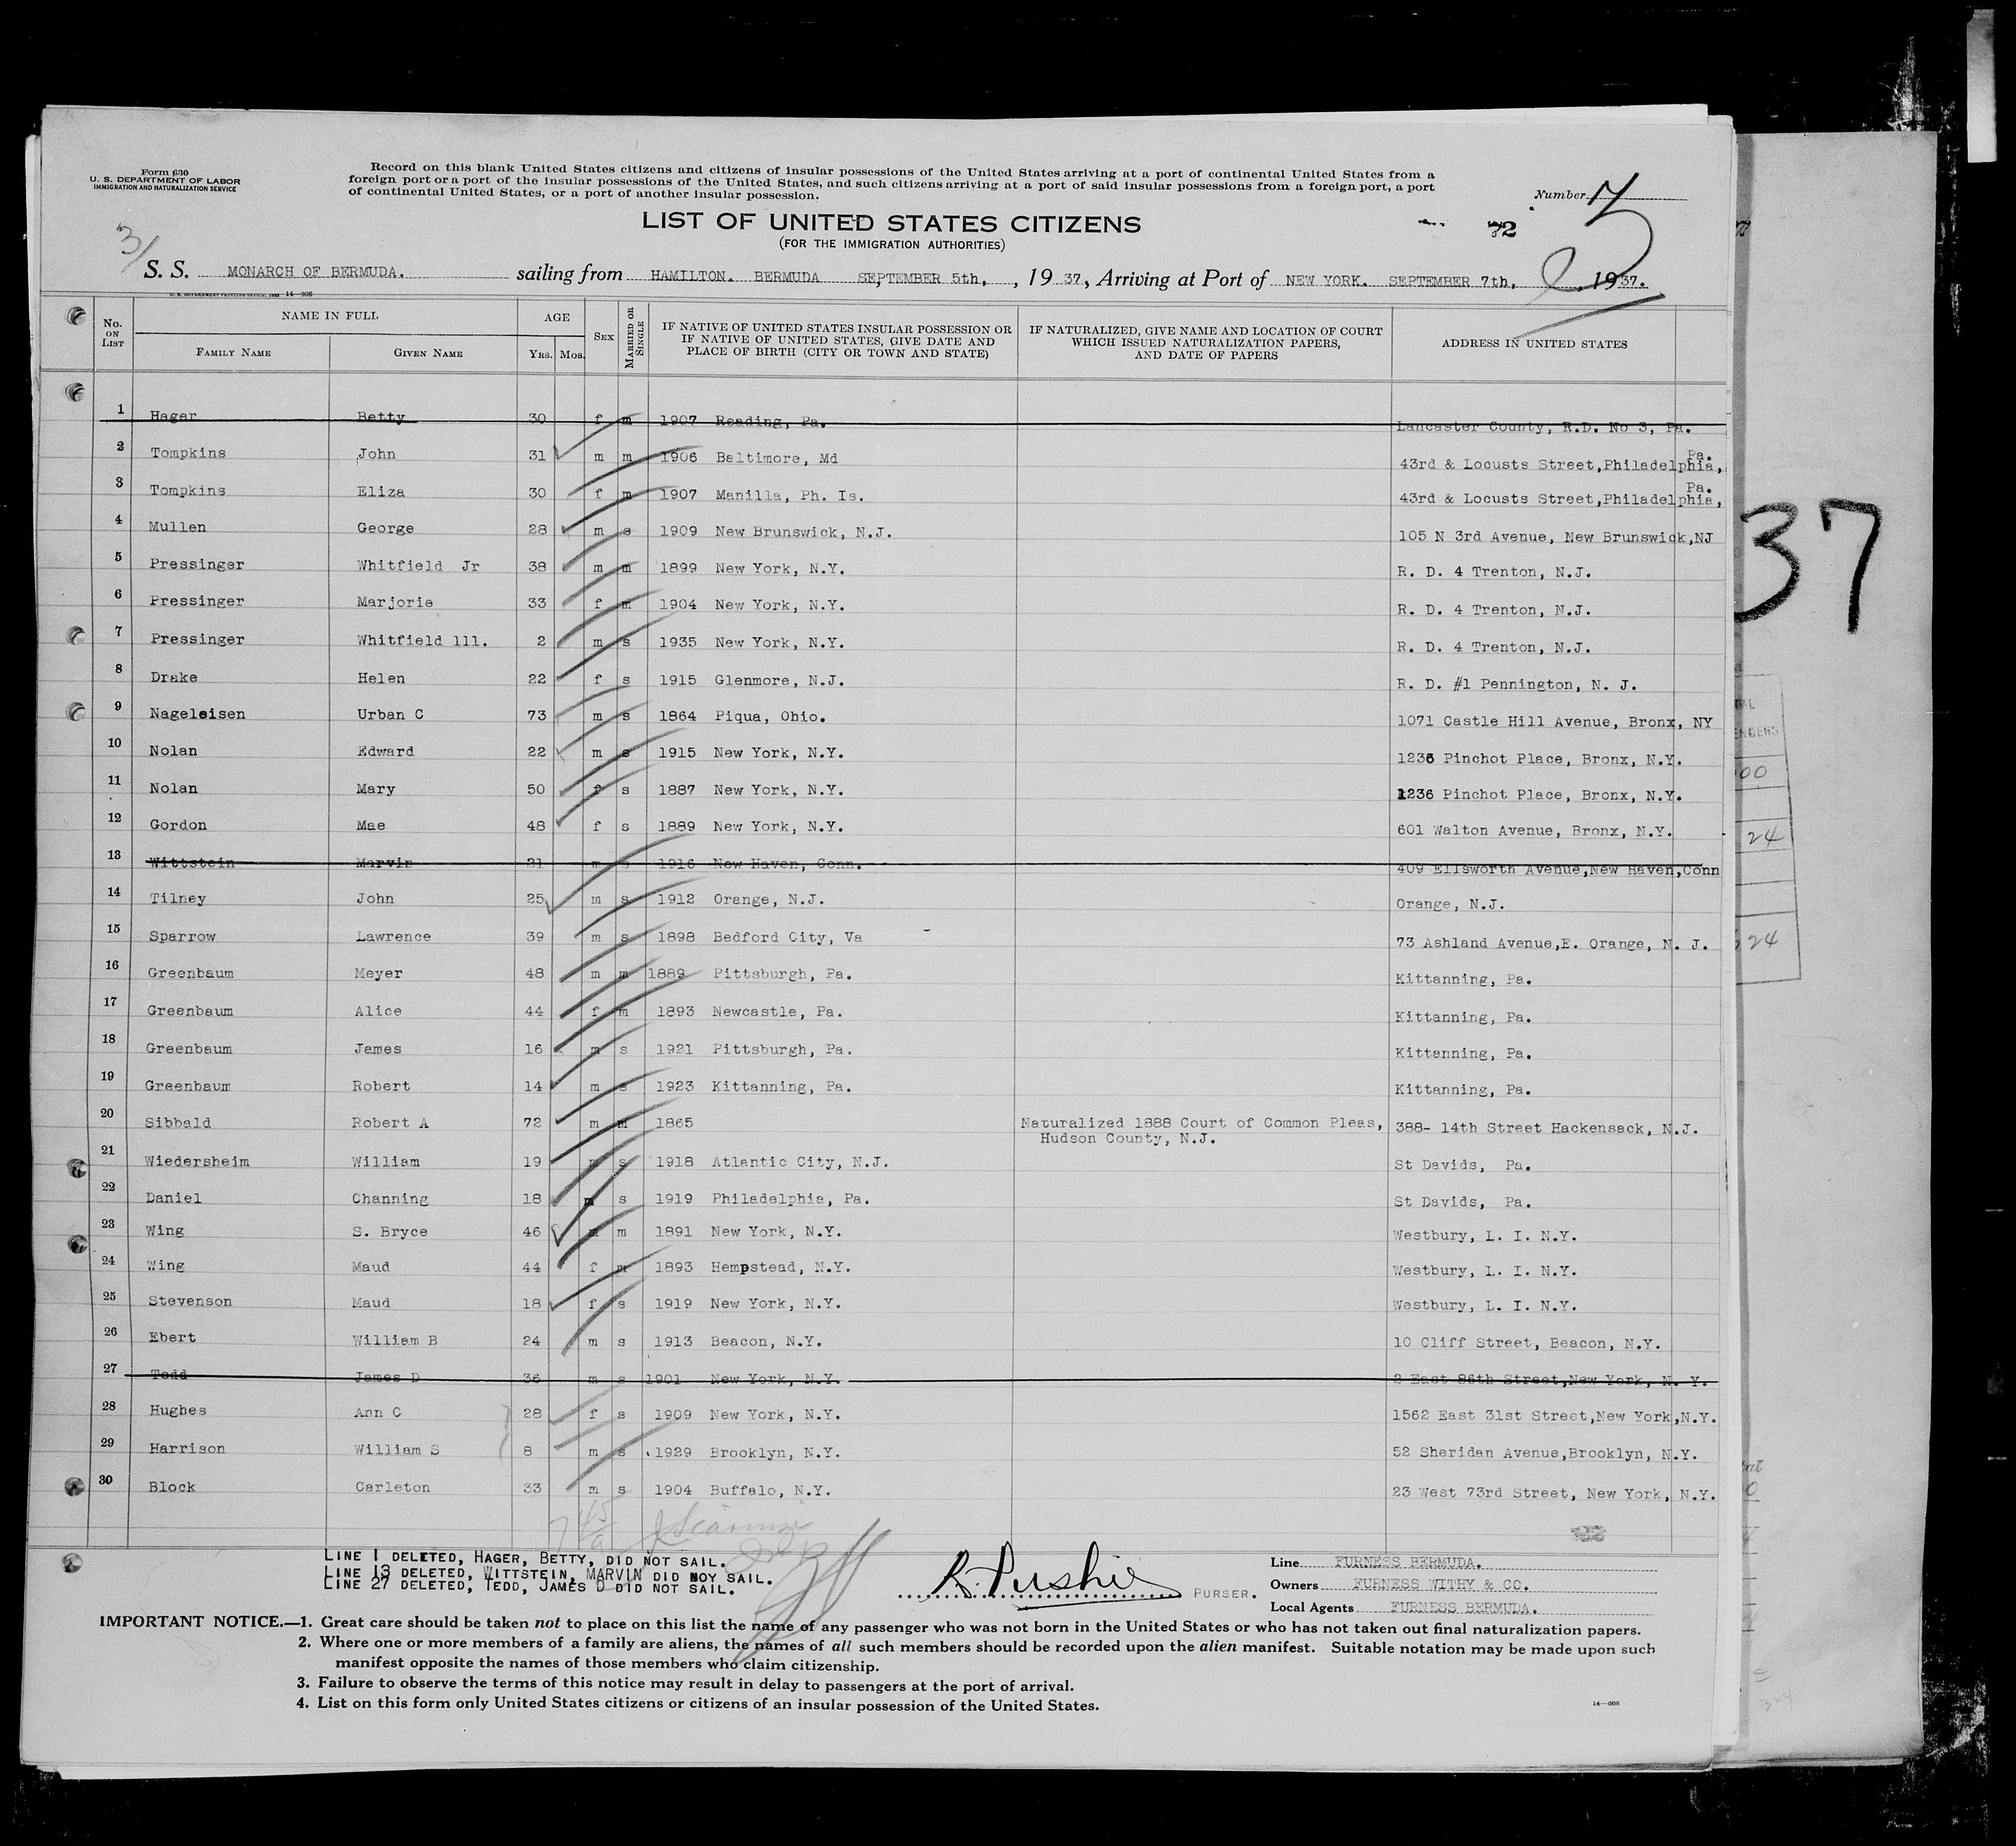 Form 630
U. S. DEPARTMENT OF LABOR
IMMIGRATION AND NATURALIZATION SERVICE
Record on this blank United States citizens and citizens of insular possessions of the United States arriving at a port of continental United States from a
foreign port or a port of the insular possessions of the United States, and such citizens arriving at a port of said insular possessions from a foreign port, a port
of continental United States, or a port of another insular possession.
Number
LIST OF UNITED STATES CITIZENS
(FOR THE IMMIGRATION AUTHORITIES)
72
3/
S. S. MONARCH OF BERMUDA. sailing from HAMILTON. BERMUDA SEPTEMBER 5th, , 19 37, Arriving at Port of NEW YORK. SEPTEMBER 7th, , 19 37.
U. S. GOVERNMENT PRINTING OFFICE 14—608
No. ON LIST NAME IN FULL AGE SEX MARRIED OR SINGLE IF NATIVE OF UNITED STATES INSULAR POSSESSION OR IF NATIVE OF UNITED STATES, GIVE DATE AND PLACE OF BIRTH (CITY OR TOWN AND STATE) IF NATURALIZED, GIVE NAME AND LOCATION OF COURT WHICH ISSUED NATURALIZATION PAPERS, AND DATE OF PAPERS ADDRESS IN UNITED STATES
FAMILY NAME GIVEN NAME YRS. MOS.
1 Hager Betty 30 f m 1907 Reading, Pa. Lancaster County, R.D. No 3, Pa.
2 Tompkins John 31 m m 1906 Baltimore, Md 43rd & Locusts Street,Philadelphia, Pa.
3 Tompkins Eliza 30 f m 1907 Manilla, Ph. Is. 43rd & Locusts Street,Philadelphia, Pa.
4 Mullen George 28 m s 1909 New Brunswick, N.J. 105 N 3rd Avenue, New Brunswick,NJ
5 Pressinger Whitfield Jr 38 m m 1899 New York, N.Y. R. D. 4 Trenton, N.J.
6 Pressinger Marjorie 33 f m 1904 New York, N.Y. R. D. 4 Trenton, N.J.
7 Pressinger Whitfield 111. 2 m s 1935 New York, N.Y. R. D. 4 Trenton, N.J.
8 Drake Helen 22 f s 1915 Glenmore, N.J. R. D. #1 Pennington, N. J.
9 Nageleisen Urban C 73 m s 1864 Piqua, Ohio. 1071 Castle Hill Avenue, Bronx, NY
10 Nolan Edward 22 m s 1915 New York, N.Y. 1236 Pinchot Place, Bronx, N.Y.
11 Nolan Mary 50 f s 1887 New York, N.Y. 1236 Pinchot Place, Bronx, N.Y.
12 Gordon Mae 48 f s 1889 New York, N.Y. 601 Walton Avenue, Bronx, N.Y.
13 Wittstein Marvin 21 m s 1916 New Haven, Conn. 409 Ellsworth Avenue,New Haven,Conn
14 Tilney John 25 m s 1912 Orange, N.J. Orange, N.J.
15 Sparrow Lawrence 39 m s 1898 Bedford City, Va 73 Ashland Avenue,E. Orange, N. J.
16 Greenbaum Meyer 48 m m 1889 Pittsburgh, Pa. Kittanning, Pa.
17 Greenbaum Alice 44 f m 1893 Newcastle, Pa. Kittanning, Pa.
18 Greenbaum James 16 m s 1921 Pittsburgh, Pa. Kittanning, Pa.
19 Greenbaum Robert 14 m s 1923 Kittanning, Pa. Kittanning, Pa.
20 Sibbald Robert A 72 m m 1865 Naturalized 1888 Court of Common Pleas, Hudson County, N.J. 388- 14th Street Hackensack, N.J.
21 Wiedersheim William 19 m s 1918 Atlantic City, N.J. St Davids, Pa.
22 Daniel Channing 18 m s 1919 Philadelphia, Pa. St Davids, Pa.
23 Wing S. Bryce 46 m m 1891 New York, N.Y. Westbury, L. I. N.Y.
24 Wing Maud 44 f m 1893 Hempstead, N.Y. Westbury, L. I. N.Y.
25 Stevenson Maud 18 f s 1919 New York, N.Y. Westbury, L. I. N.Y.
26 Ebert William B 24 m s 1913 Beacon, N.Y. 10 Cliff Street, Beacon, N.Y.
27 Tedd James D 36 m s 1901 New York, N.Y. 2 East 86th Street,New York, N. Y.
28 Hughes Ann C 28 f s 1909 New York, N.Y. 1562 East 31st Street,New York,N.Y.
29 Harrison William S 8 m s 1929 Brooklyn, N.Y. 52 Sheridan Avenue,Brooklyn, N.Y.
30 Block Carleton 33 m s 1904 Buffalo, N.Y. 23 West 73rd Street, New York, N.Y.
LINE 1 DELETED, HAGER, BETTY, DID NOT SAIL.
LINE 13 DELETED, WITTSTEIN, MARVIN DID NOY SAIL.
LINE 27 DELETED, TEDD, JAMES D DID NOT SAIL.
R. Pushie PURSER.
Line FURNESS BERMUDA.
Owners FURNESS WITHY & CO.
Local Agents FURNESS BERMUDA.
IMPORTANT NOTICE.—1. Great care should be taken not to place on this list the name of any passenger who was not born in the United States or who has not taken out final naturalization papers.
2. Where one or more members of a family are aliens, the names of all such members should be recorded upon the alien manifest. Suitable notation may be made upon such
manifest opposite the names of those members who claim citizenship.
3. Failure to observe the terms of this notice may result in delay to passengers at the port of arrival.
4. List on this form only United States citizens or citizens of an insular possession of the United States.
14—608
37
00
24
24